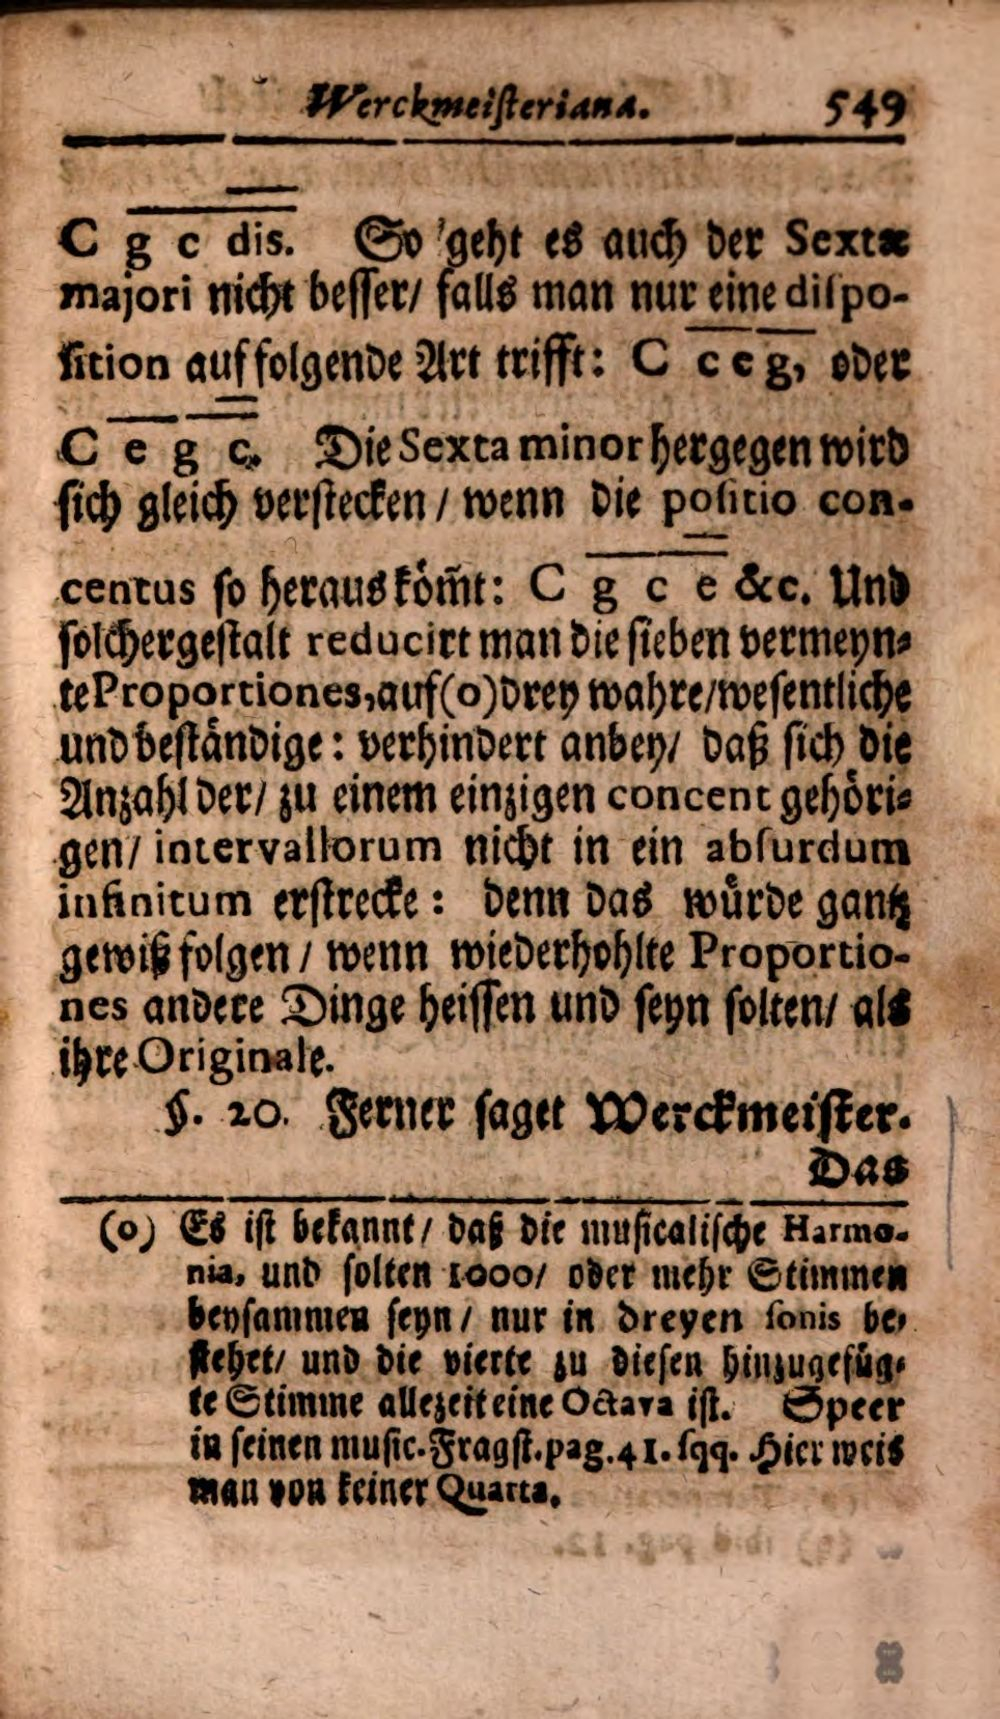 Werckmeisteriana. 549
C g c dis. So geht es auch der Sextæ
majori nicht besser/ falls man nur eine dispo-
sition auf folgende Art trifft: C c e g, oder
C e g c. Die Sexta minor hergegen wird
sich gleich verstecken / wenn die positio con-
centus so heraus kom̃t: C g c e &c. Und
solchergestalt reducirt man die sieben vermeyn-
te Proportiones, auf (o) drey wahre/wesentliche
und beständige: verhindert anbey/ daß sich die
Anzahl der/ zu einem einzigen concent gehöri-
gen/ intervallorum nicht in ein absurdum
infinitum erstrecke: denn das würde gantz
gewiß folgen / wenn wiederhohlte Proportio-
nes andere Dinge heissen und seyn solten/ als
ihre Originale.
§. 20. Ferner saget Werckmeister.
Das
(o) Es ist bekannt/ daß die musicalische Harmo-
nia, und solten 1000/ oder mehr Stimmen
beysammen seyn / nur in dreyen sonis be-
stehet/ und die vierte zu diesen hinzugefüg-
te Stimme allezeit eine Octava ist. Speer
in seinen music. Fragst. pag. 41. sqq. Hier weis
man von keiner Quarta.